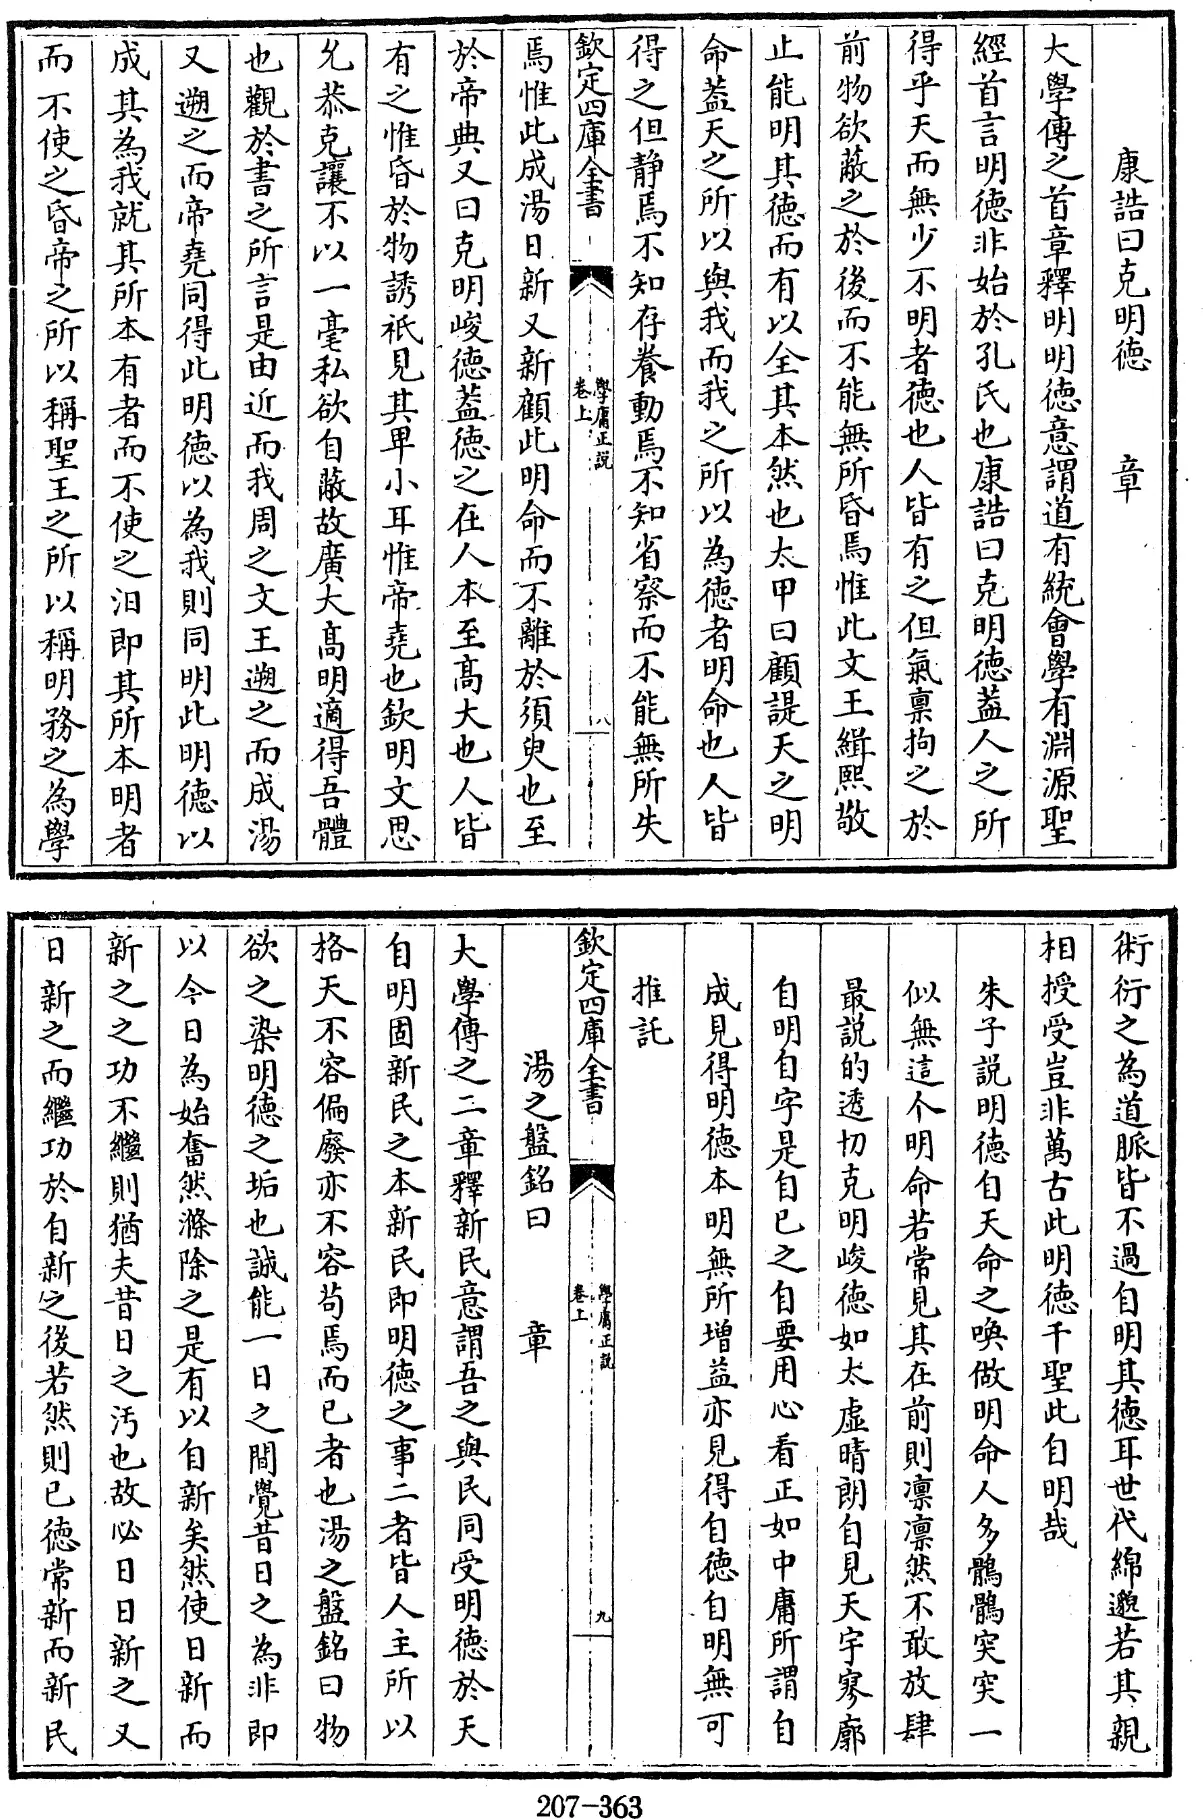 康誥曰克明德　章
大學傳之首章釋明明徳意謂道有統會學有淵源聖
經首言明徳非始於孔氏也康誥曰克明徳葢人之所
得乎天而無少不明者徳也人皆有之但氣禀拘之於
前物欲蔽之於後而不能無所昏焉惟此文王緝熙敬
止能明其徳而有以全其本然也太甲曰顧諟天之明
命葢天之所以與我而我之所以為徳者明命也人皆
得之但静焉不知存養動焉不知省察而不能無所失
欽定四庫全書
學庸正説
卷上
八
焉惟此成湯日新又新顧此明命而不離於須臾也至
於帝典又曰克明峻徳葢徳之在人本至髙大也人皆
有之惟昏於物誘祇見其卑小耳惟帝堯也欽明文思
允恭克讓不以一毫私欲自蔽故廣大髙明適得吾體
也觀於書之所言是由近而我周之文王遡之而成湯
又遡之而帝堯同得此明徳以為我則同明此明徳以
成其為我就其所本有者而不使之汨即其所本明者
而不使之昏帝之所以稱聖王之所以稱明務之為學
術衍之為道脈皆不過自明其徳耳世代綿邈若其親
相授受豈非萬古此明徳千聖此自明哉
朱子説明徳自天命之喚做明命人多鶻鶻突突一
似無這个明命若常見其在前則凛凛然不敢放肆
最説的透切克明峻徳如太虚晴朗自見天宇寥廓
自明自字是自已之自要用心看正如中庸所謂自
成見得明徳本明無所増益亦見得自徳自明無可
推託
欽定四庫全書
學庸正説
卷上
九
湯之盤銘曰　章
大學傳之二章釋新民意謂吾之與民同受明徳於天
自明固新民之本新民即明徳之事二者皆人主所以
格天不容偏廢亦不容苟焉而已者也湯之盤銘曰物
欲之染明徳之垢也誠能一日之間覺昔日之為非即
以今日為始奮然滌除之是有以自新矣然使日新而
新之之功不繼則猶夫昔日之汚也故必日日新之又
日新之而繼功於自新之後若然則已徳常新而新民
207-363